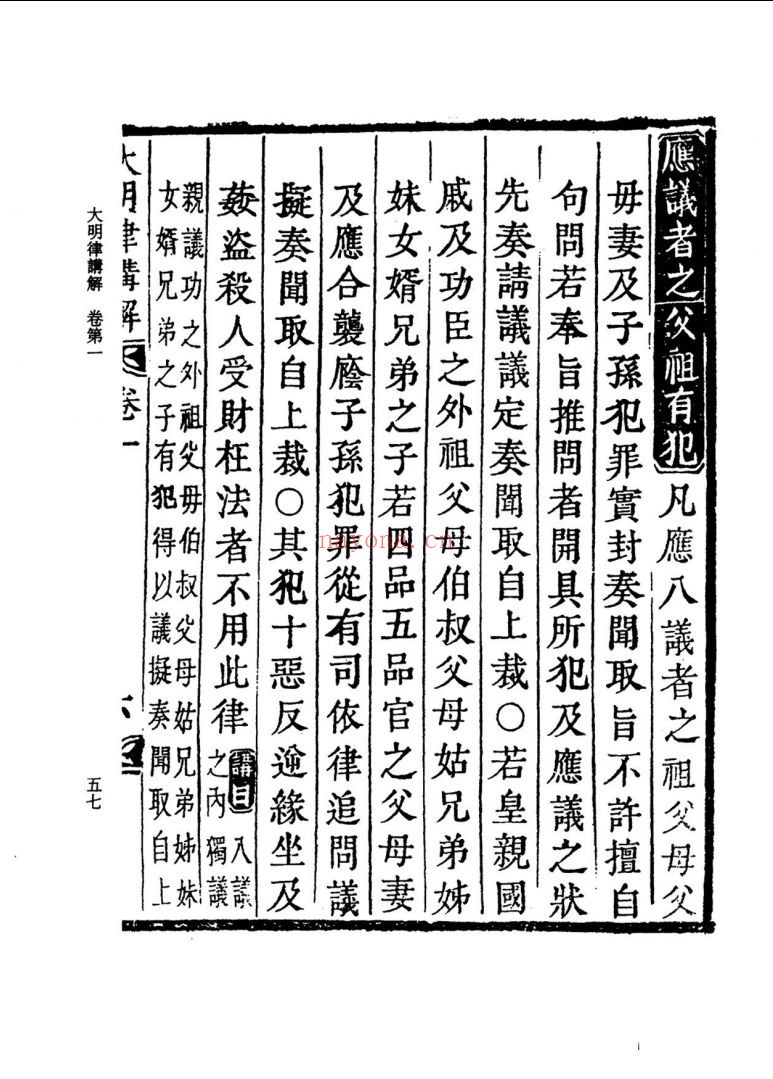 應議者之父祖有犯 凡應八議者之祖父母父
毋妻及子孫犯罪實封奏聞取旨不許擅自
句問若奉旨推問者開具所犯及應議之狀
先奏請議議定奏聞取自上裁○若皇親國
戚及功臣之外祖父母伯叔父母姑兄弟姊
妹女婿兄弟之子若四品五品官之父母妻
及應合襲廕子孫犯罪從有司依律追問議
擬奏聞取自上裁○其犯十惡反逆緣坐及
姦盜殺人受財枉法者不用此律 講曰 入議
之內獨議
親議功之外祖父毋伯叔父母姑兄弟姊妹
女婿兄弟之子有犯得以議擬奏聞取自上
大明律講解 卷一
大明律講解 卷第一
五七
nayona.cn